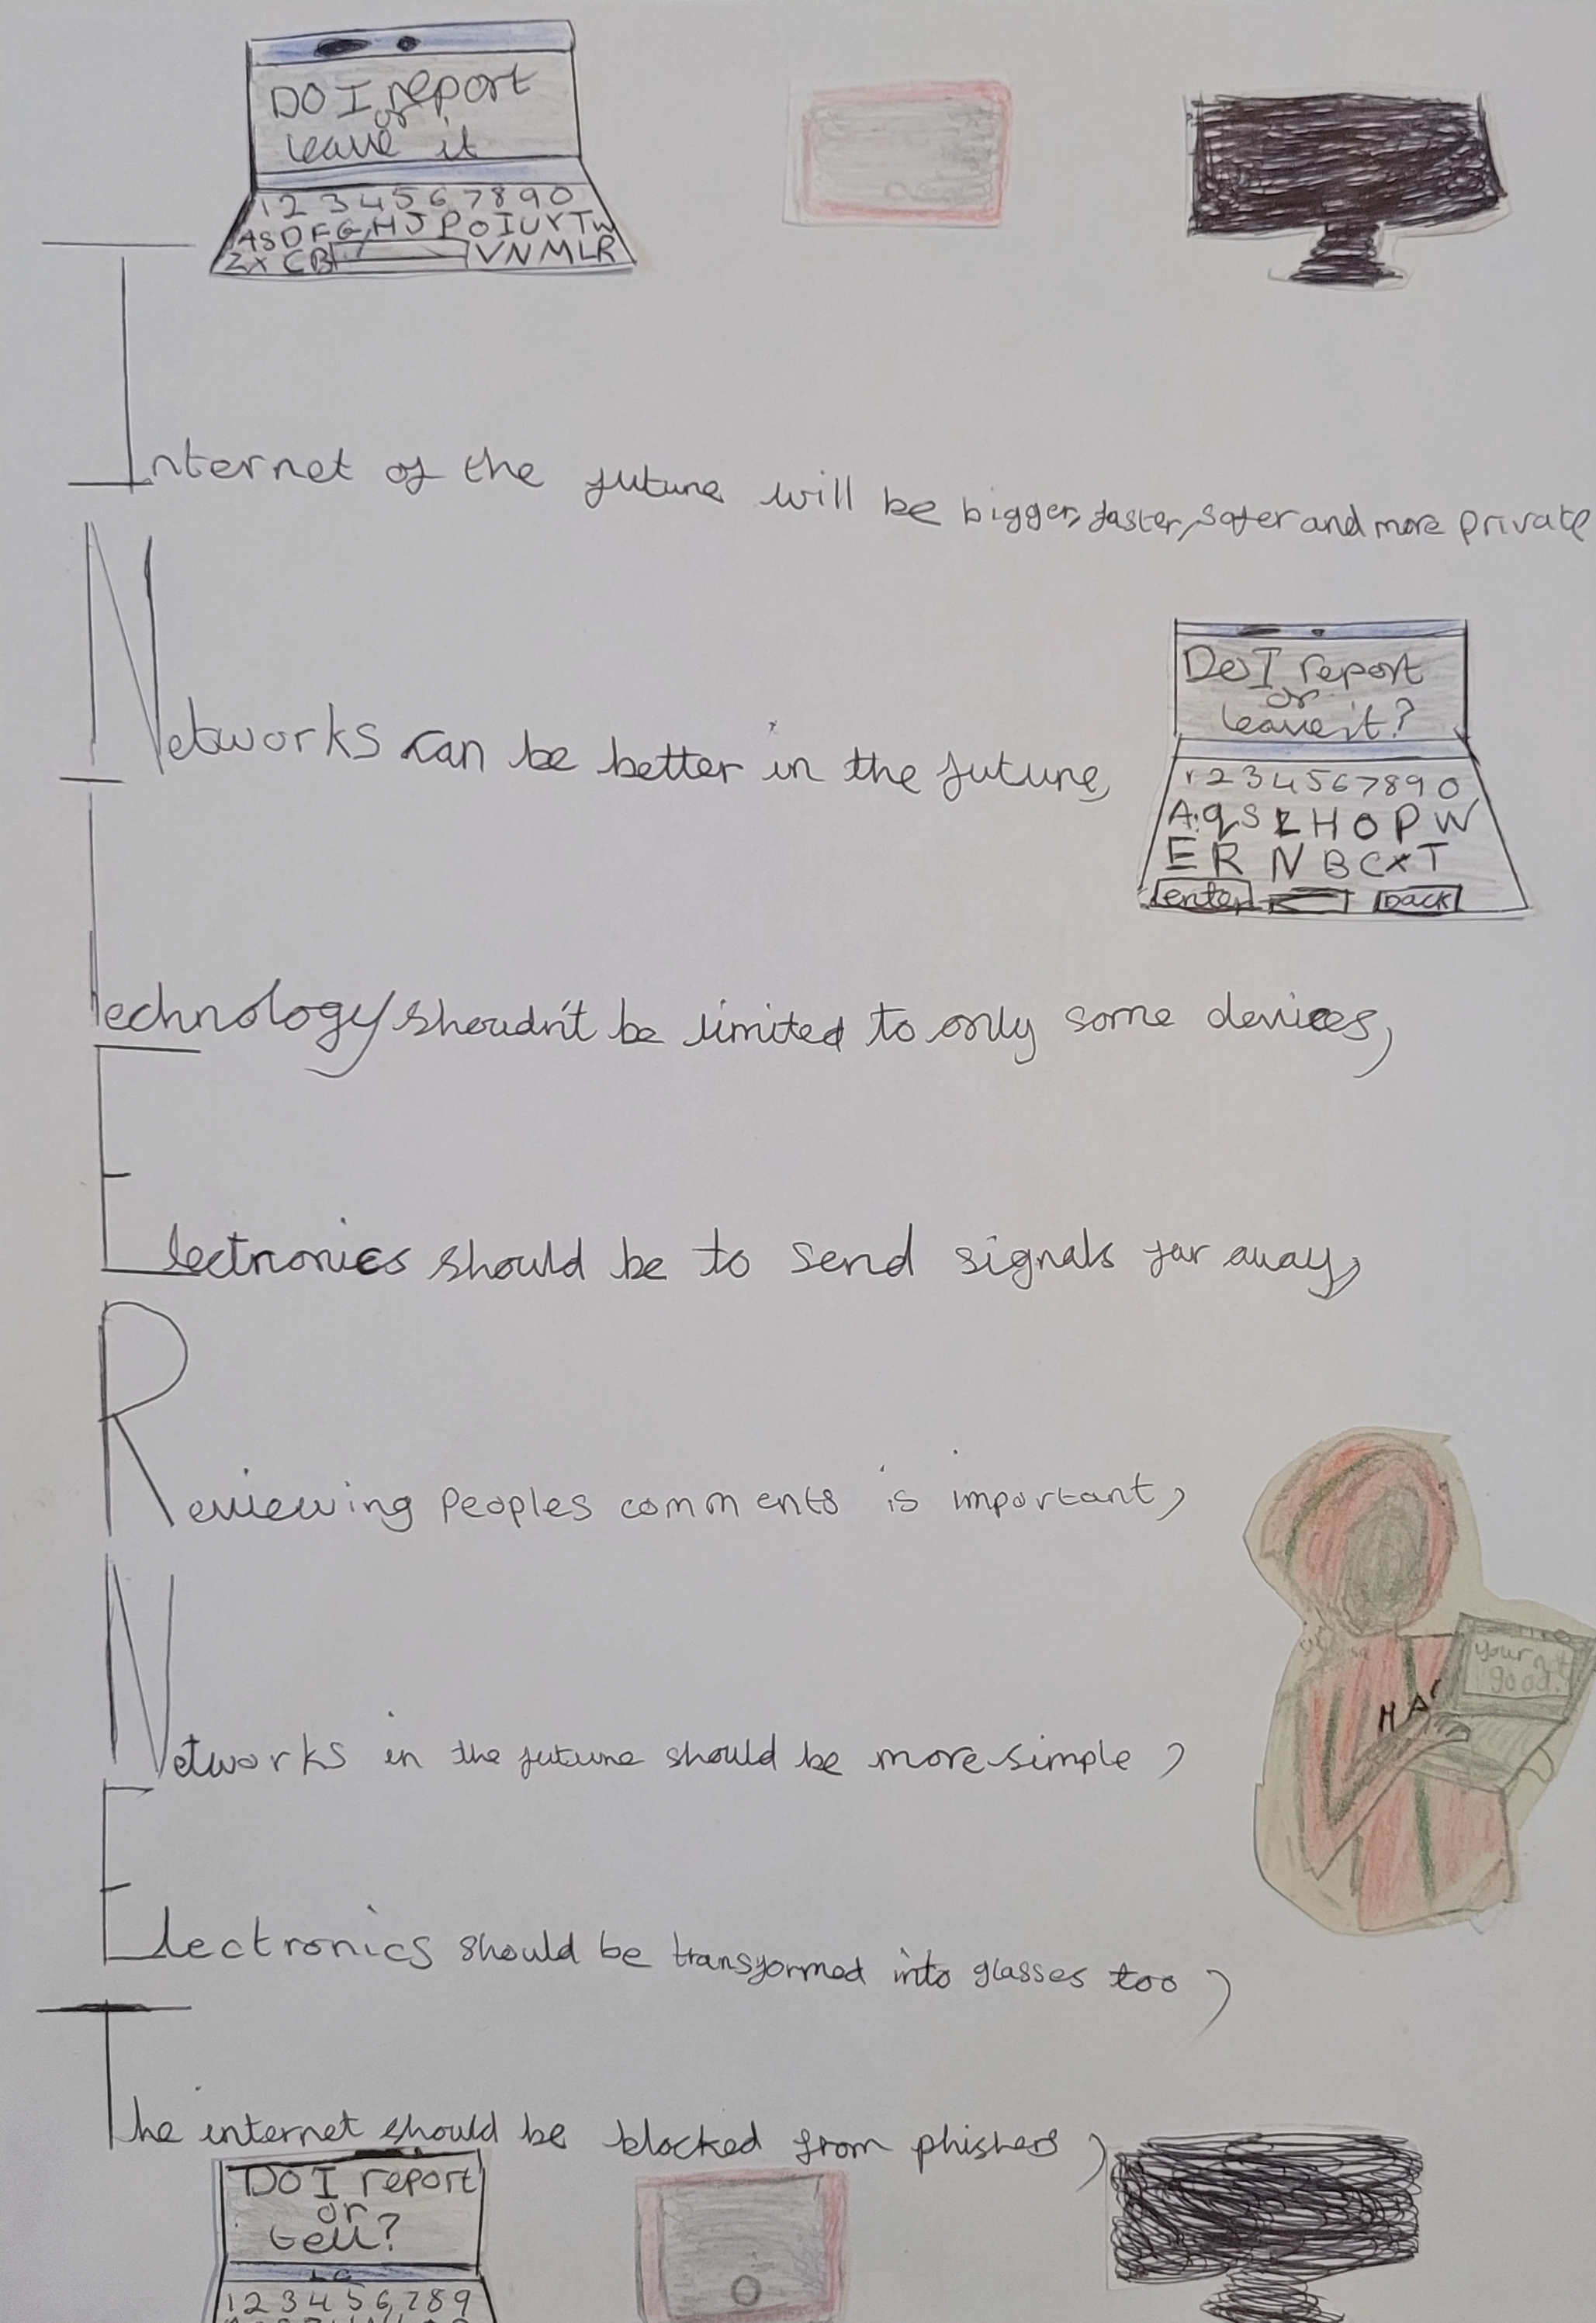 DO I report
or
leave it
1 2 3 4 5 6 7 8 9 0
A S D F G H J P O I U Y T W
Z X C B V N M L R
Internet of the future will be bigger, faster, safer and more private
Networks can be better in the future,
Do I report
or
leave it?
1 2 3 4 5 6 7 8 9 0
A q S L H O P W
E R N B C X T
enter back
Technology shouldn't be limited to only some devices,
Electronics should be to send signals far away,
Reviewing peoples comments is important,
your not
good.
HAC
Networks in the future should be more simple,
Electronics should be transformed into glasses too,
The internet should be blocked from phishers,
DO I report
or
tell?
1 2 3 4 5 6 7 8 9